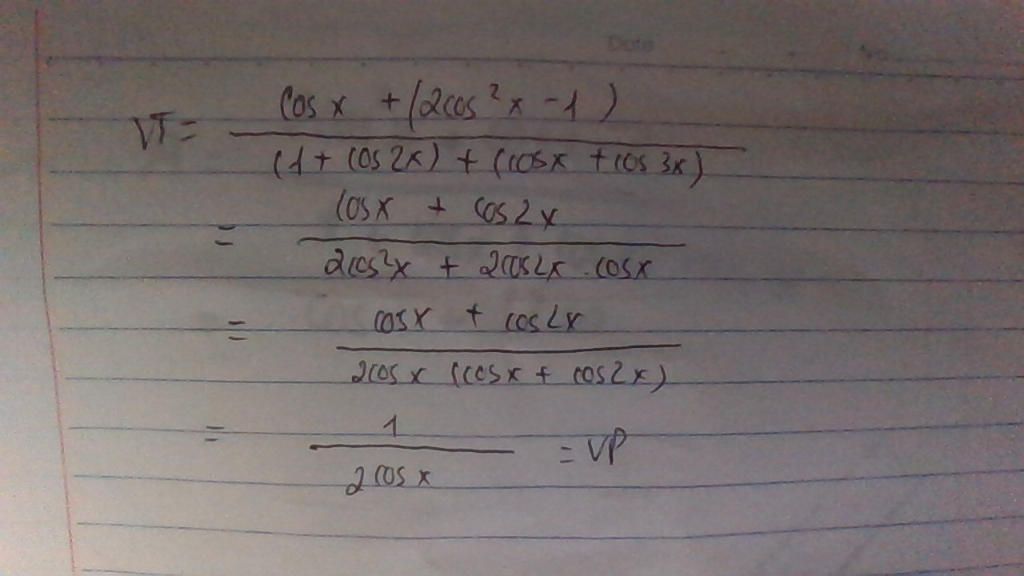 Date No
VT = (cos x + (2cos²x - 1)) / ((1 + cos2x) + (cosx + cos3x))
= (cosx + cos2x) / (2cos²x + 2cos2x . cosx)
= (cosx + cos2x) / (2cosx (cosx + cos2x))
= 1 / (2cosx) = VP